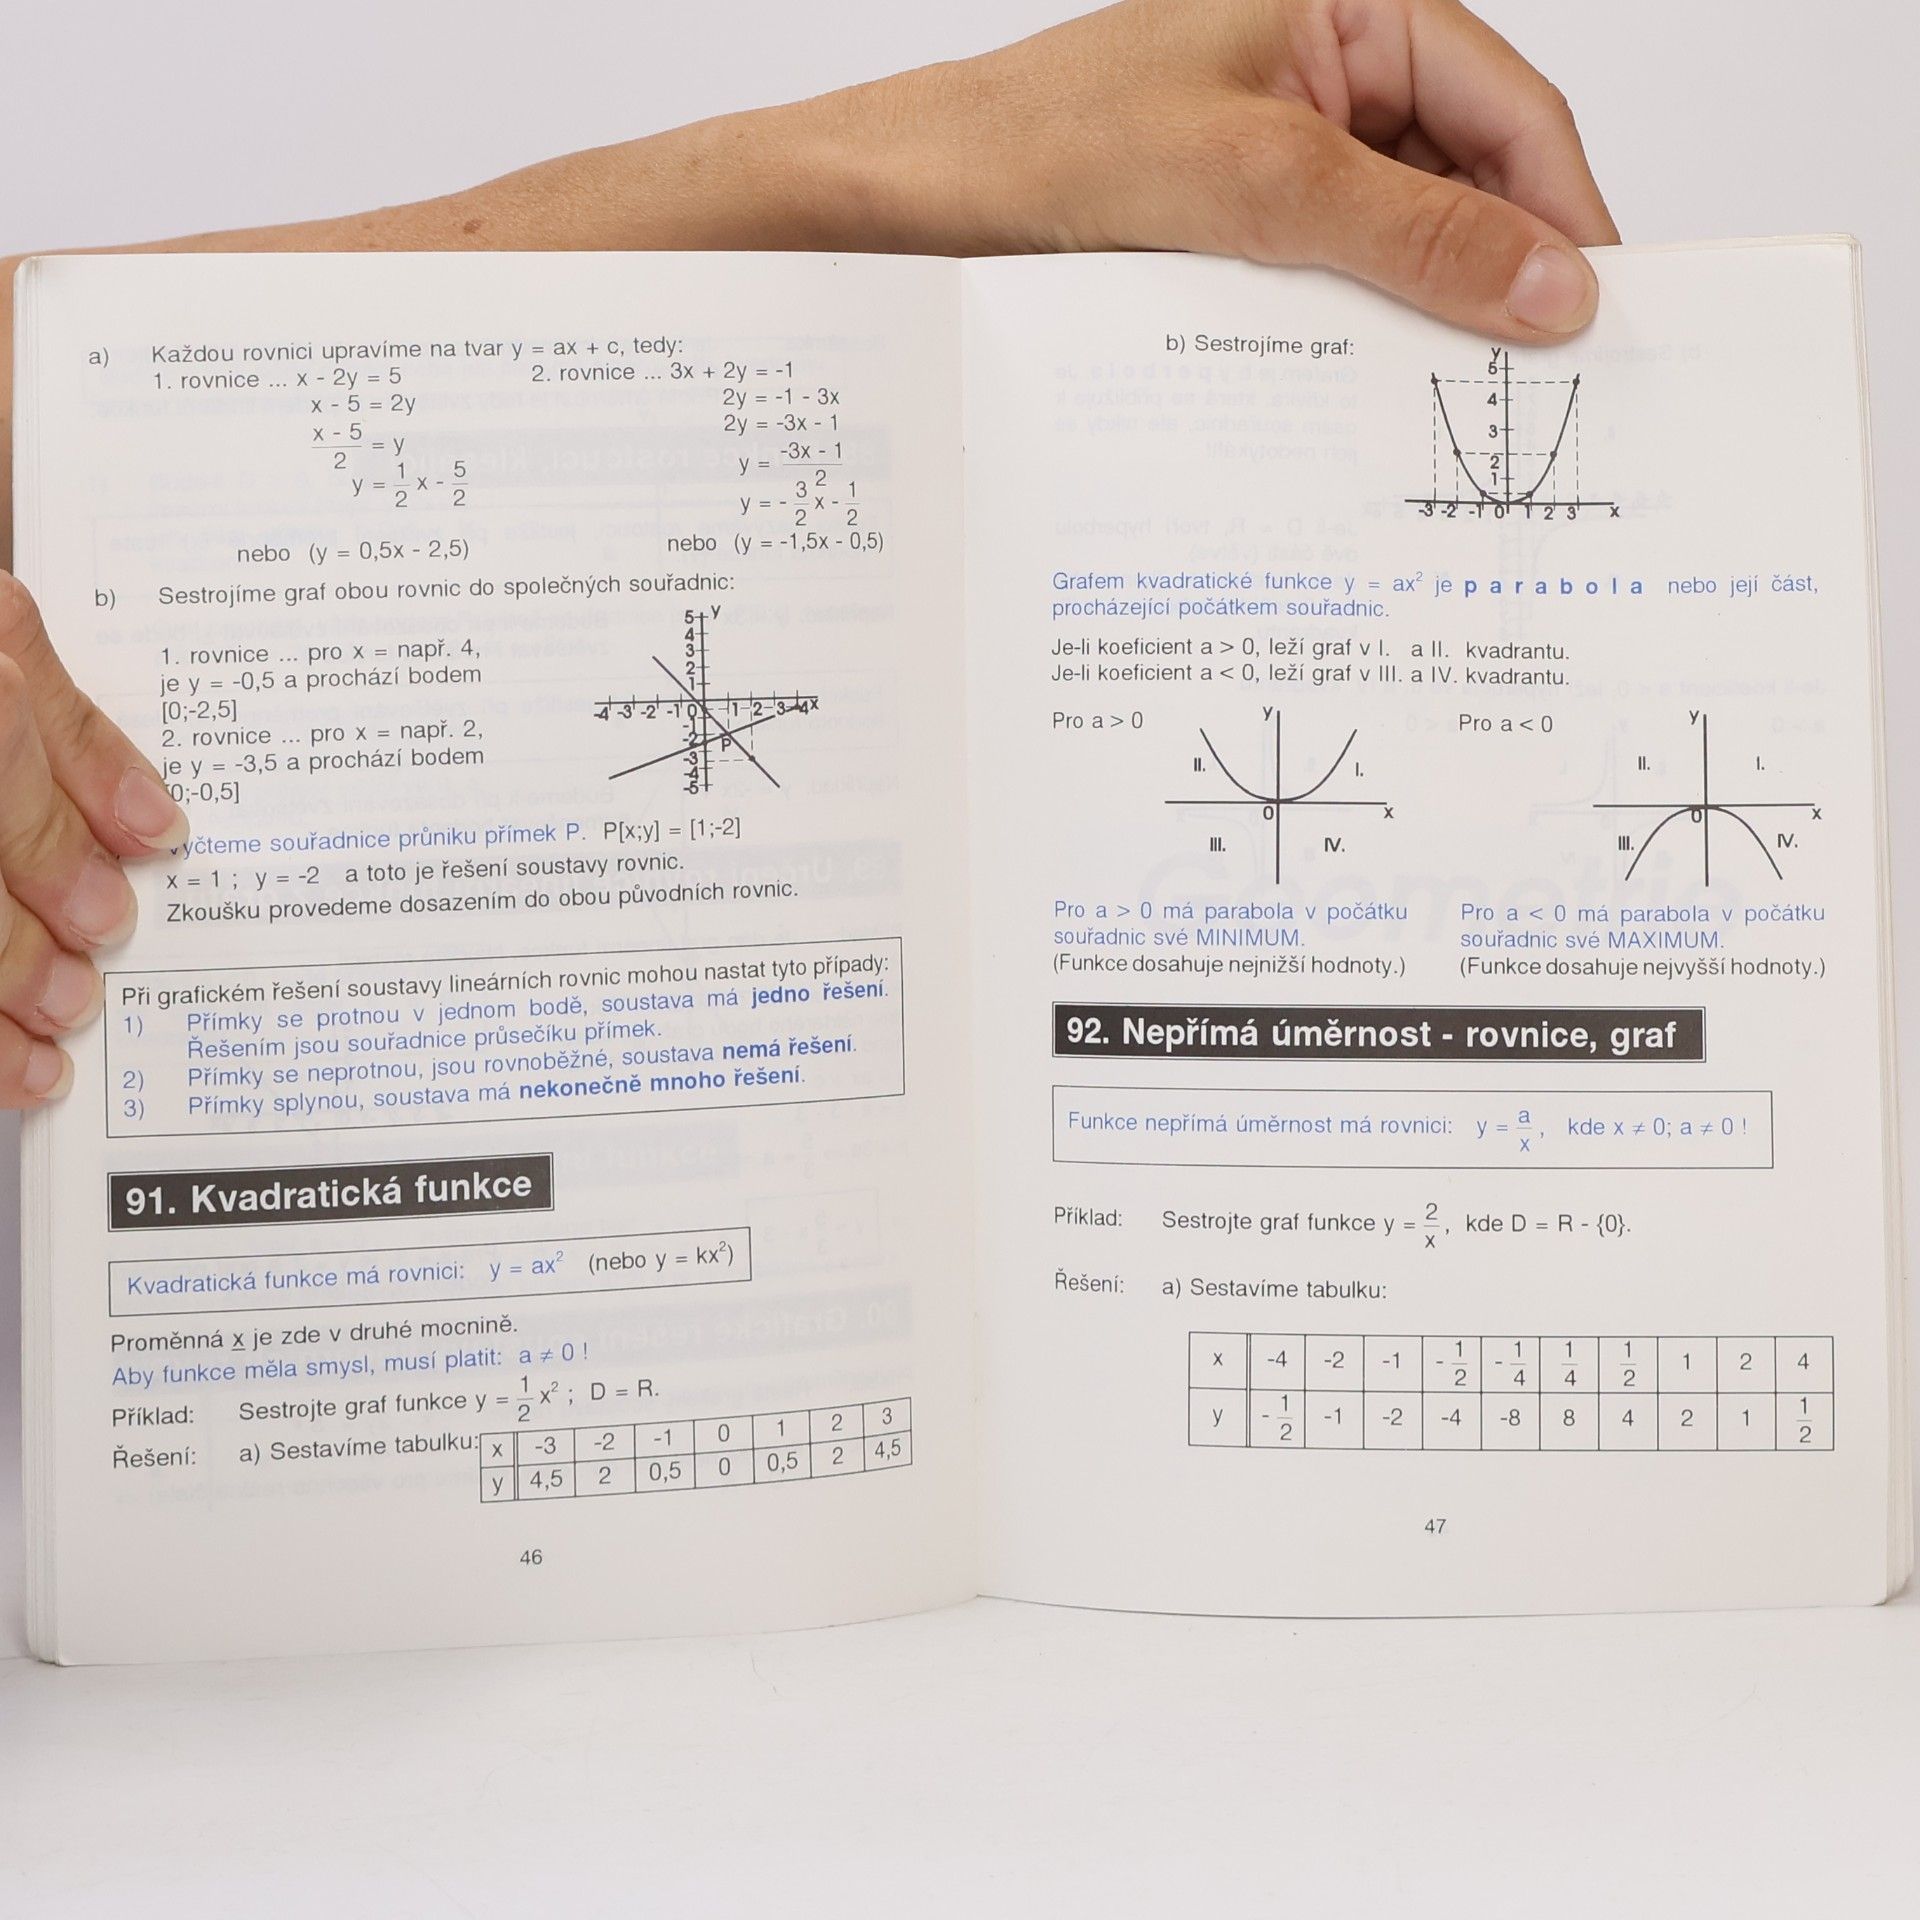 a) Každou rovnici upravíme na tvar y = ax + c, tedy:
1. rovnice ... x - 2y = 5
x - 5 = 2y
x - 5 / 2 = y
y = 1/2 x - 5/2
nebo (y = 0,5x - 2,5)
2. rovnice ... 3x + 2y = -1
2y = -1 - 3x
2y = -3x - 1
y = -3x - 1 / 2
y = - 3/2 x - 1/2
nebo (y = -1,5x - 0,5)
b) Sestrojíme graf obou rovnic do společných souřadnic:
1. rovnice ... pro x = např. 4,
je y = -0,5 a prochází bodem
[0;-2,5]
2. rovnice ... pro x = např. 2,
je y = -3,5 a prochází bodem
[0;-0,5]
5 y
4
3
2
1
-4 -3 -2 -1 0 1 2 3 4 x
-1
-2
P
-3
-4
-5
Vyčteme souřadnice průniku přímek P. P[x;y] = [1;-2]
x = 1 ; y = -2 a toto je řešení soustavy rovnic.
Zkoušku provedeme dosazením do obou původních rovnic.
Při grafickém řešení soustavy lineárních rovnic mohou nastat tyto případy:
1) Přímky se protnou v jednom bodě, soustava má jedno řešení.
Řešením jsou souřadnice průsečíku přímek.
2) Přímky se neprotnou, jsou rovnoběžné, soustava nemá řešení.
3) Přímky splynou, soustava má nekonečně mnoho řešení.
91. Kvadratická funkce
Kvadratická funkce má rovnici: y = ax² (nebo y = kx²)
Proměnná x je zde v druhé mocnině.
Aby funkce měla smysl, musí platit: a ≠ 0 !
Příklad: Sestrojte graf funkce y = 1/2 x² ; D = R.
Řešení: a) Sestavíme tabulku:
x -3 -2 -1 0 1 2 3
y 4,5 2 0,5 0 0,5 2 4,5
46
b) Sestrojíme graf:
y
5
4
3
2
1
-3 -2 -1 0 1 2 3 x
Grafem kvadratické funkce y = ax² je p a r a b o l a nebo její část,
procházející počátkem souřadnic.
Je-li koeficient a > 0, leží graf v I. a II. kvadrantu.
Je-li koeficient a < 0, leží graf v III. a IV. kvadrantu.
Pro a > 0
y
II. I.
0 x
III. IV.
Pro a < 0
y
II. I.
0 x
III. IV.
Pro a > 0 má parabola v počátku
souřadnic své MINIMUM.
(Funkce dosahuje nejnižší hodnoty.)
Pro a < 0 má parabola v počátku
souřadnic své MAXIMUM.
(Funkce dosahuje nejvyšší hodnoty.)
92. Nepřímá úměrnost - rovnice, graf
Funkce nepřímá úměrnost má rovnici: y = a/x , kde x ≠ 0; a ≠ 0 !
Příklad: Sestrojte graf funkce y = 2/x , kde D = R - {0}.
Řešení: a) Sestavíme tabulku:
x -4 -2 -1 -1/2 -1/4 1/4 1/2 1 2 4
y -1/2 -1 -2 -4 -8 8 4 2 1 1/2
47